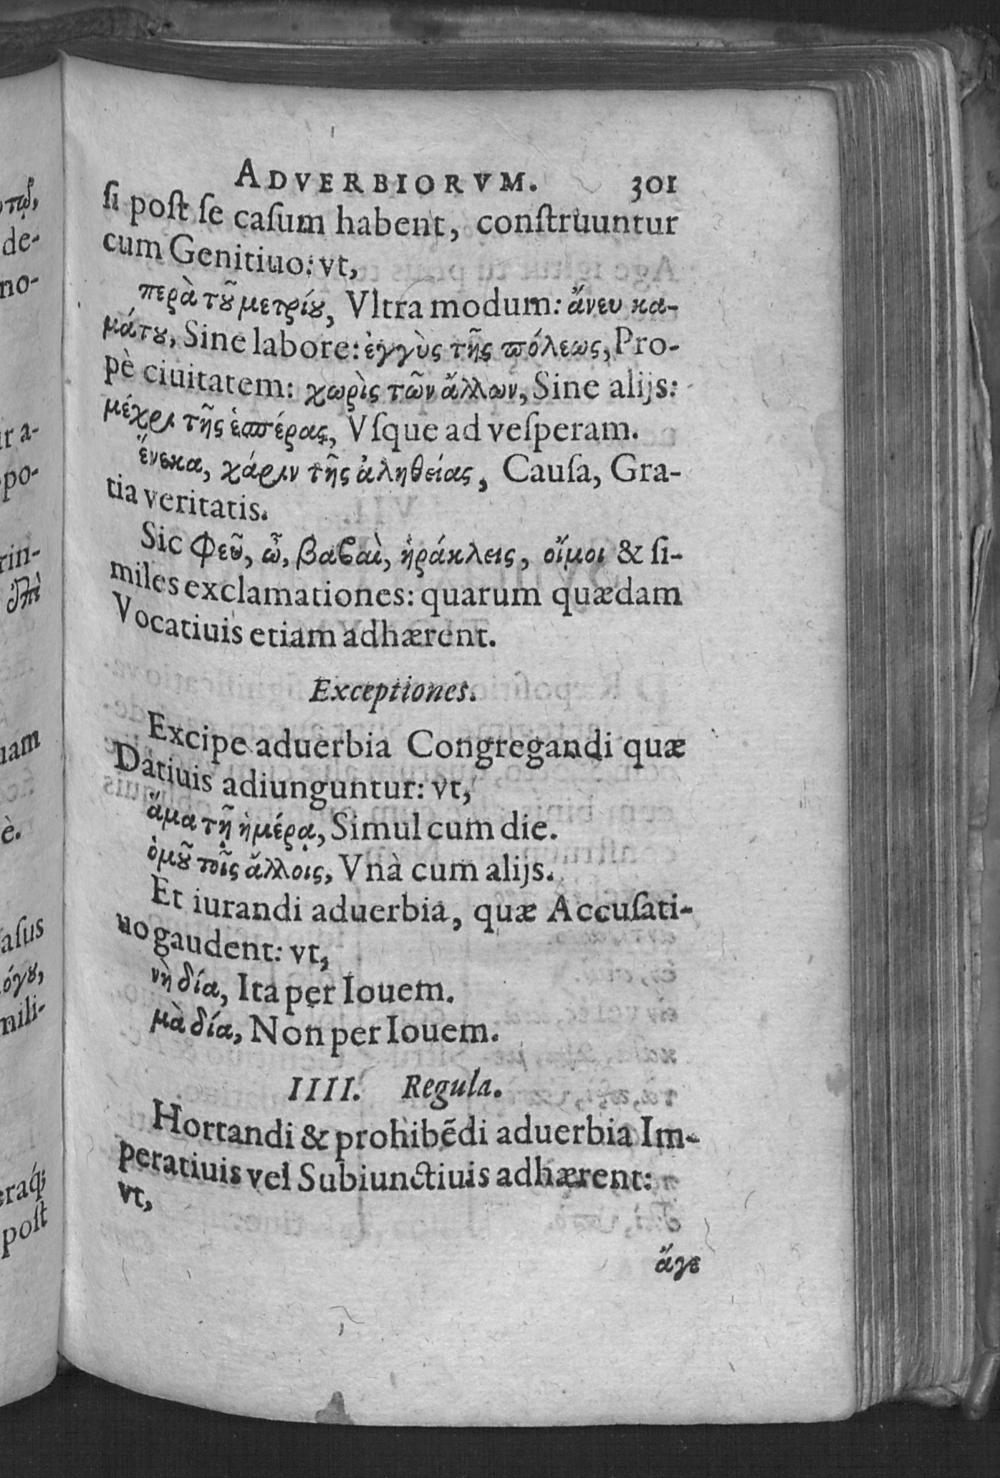 ADVERBIORVM. 301
ſi poſt ſe caſum habent, conſtruuntur
cum Genitiuo: vt,
περὰ τοῦ μετρίου, Vltra modum: ἄνευ κα-
μάτου, Sine labore: ἐγγὺς τῆς πόλεως, Pro-
pè ciuitatem: χωρὶς τῶν ἄλλων, Sine alijs:
μέχρι τῆς ἑσπέρας, Vſque ad veſperam.
ἕνεκα, χάριν τῆς ἀληθείας, Cauſa, Gra-
tia veritatis.
Sic φεῦ, ὦ, βαβαὶ, ἡράκλεις, οἴμοι & ſi-
miles exclamationes: quarum quædam
Vocatiuis etiam adhærent.
Exceptiones.
Excipe aduerbia Congregandi quæ
Datiuis adiunguntur: vt,
ἅμα τῇ ἡμέρᾳ, Simul cum die.
ὁμοῦ τοῖς ἄλλοις, Vnà cum alijs.
Et iurandi aduerbia, quæ Accuſati-
uo gaudent: vt,
νὴ δία, Ita per Iouem.
μὰ δία, Non per Iouem.
IIII. Regula.
Hortandi & prohibẽdi aduerbia Im-
peratiuis vel Subiunctiuis adhærent:
vt,
ἄγε